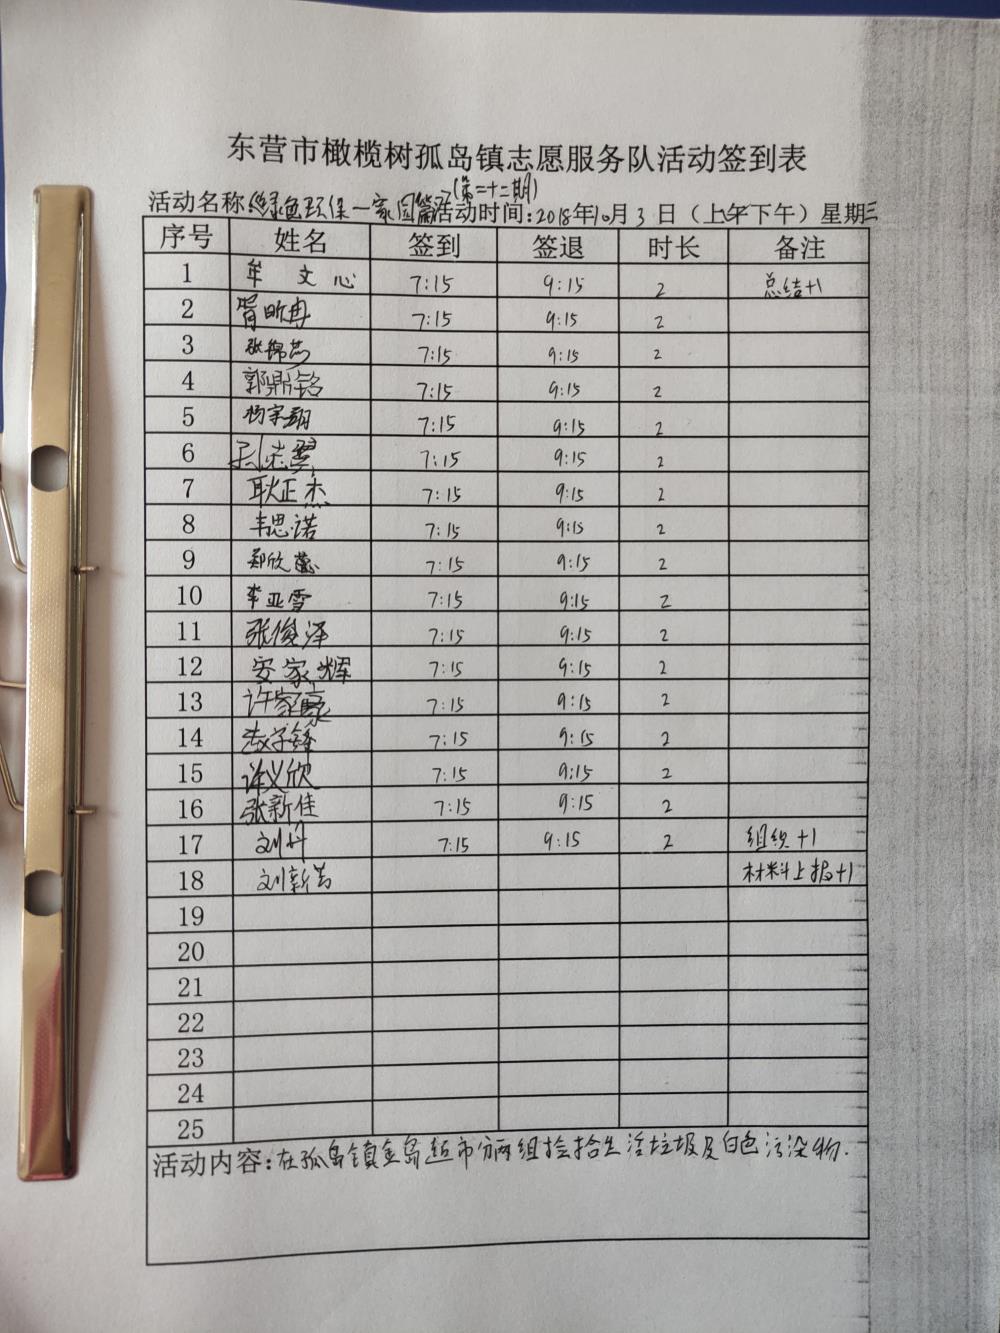 东营市橄榄树孤岛镇志愿服务队活动签到表
(第二十二期)
活动名称 绿色环保一家园篇 活动时间:2018年10月3日（上午下午）星期三
序号 姓名 签到 签退 时长 备注
1 牟文心 7:15 9:15 2 总结+1
2 胥昕冉 7:15 9:15 2
3 张锦芮 7:15 9:15 2
4 郭鼎铭 7:15 9:15 2
5 杨宇翔 7:15 9:15 2
6 7:15 9:15 2
7 耿正杰 7:15 9:15 2
8 韦思诺 7:15 9:15 2
9 郑欣蕊 7:15 9:15 2
10 李亚雪 7:15 9:15 2
11 张俊泽 7:15 9:15 2
12 安家辉 7:15 9:15 2
13 许家豪 7:15 9:15 2
14 7:15 9:15 2
15 许义欣 7:15 9:15 2
16 张新佳 7:15 9:15 2
17 刘丹 7:15 9:15 2 组织+1
18 刘新苦 材料上报+1
19
20
21
22
23
24
25
活动内容:在孤岛镇金岛超市分两组捡拾生活垃圾及白色污染物.